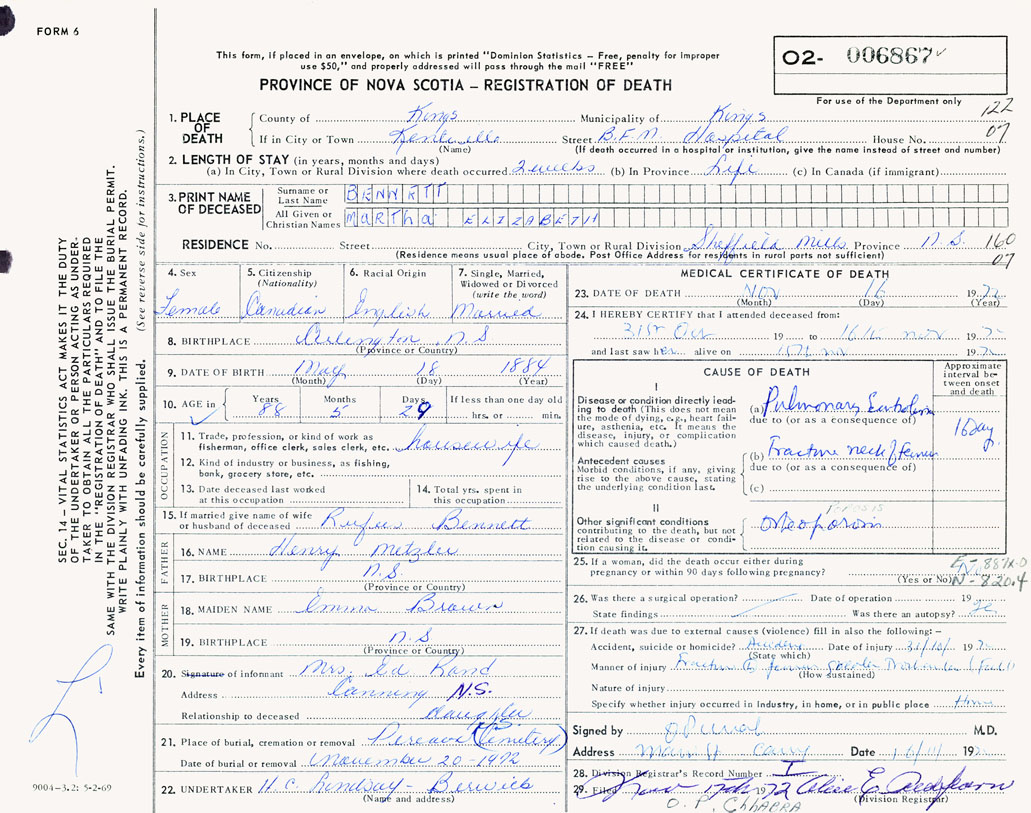 FORM 6
This form, if placed in an envelope, on which is printed "Dominion Statistics – Free, penalty for improper
use $50," and properly addressed will pass through the mail "FREE"
O2- 006867
PROVINCE OF NOVA SCOTIA – REGISTRATION OF DEATH
For use of the Department only
122
07
1. PLACE OF DEATH
County of Kings Municipality of Kings
If in City or Town Kentville Street B.F.M. Hospital House No.
(Name) (If death occurred in a hospital or institution, give the name instead of street and number)
2. LENGTH OF STAY (in years, months and days)
(a) In City, Town or Rural Division where death occurred 2 weeks (b) In Province Life (c) In Canada (if immigrant)
3. PRINT NAME OF DECEASED
Surname or Last Name BENNETT
All Given or Christian Names MARTHA ELIZABETH
RESIDENCE No. Street City, Town or Rural Division Sheffield Mills Province N.S. 160
(Residence means usual place of abode. Post Office Address for residents in rural parts not sufficient) 07
4. Sex Female
5. Citizenship (Nationality) Canadian
6. Racial Origin English
7. Single, Married, Widowed or Divorced (write the word) Married
8. BIRTHPLACE Arlington N.S
(Province or Country)
9. DATE OF BIRTH May 18 1884
(Month) (Day) (Year)
10. AGE in Years 88 Months 5 Days 29 If less than one day old
hrs. or min.
OCCUPATION
11. Trade, profession, or kind of work as
fisherman, office clerk, sales clerk, etc. housewife
12. Kind of industry or business, as fishing,
bank, grocery store, etc.
13. Date deceased last worked
at this occupation
14. Total yrs. spent in
this occupation
15. If married give name of wife
or husband of deceased Rufus Bennett
FATHER
16. NAME Henry Metzler
17. BIRTHPLACE N.S.
(Province or Country)
MOTHER
18. MAIDEN NAME Emma Brown
19. BIRTHPLACE N.S
(Province or Country)
20. Signature of informant Mrs. Ed Rand
Address Canning N.S.
Relationship to deceased daughter
21. Place of burial, cremation or removal Pereaux (Cemetery)
Date of burial or removal November 20-1972
22. UNDERTAKER H. C. Lindsay – Berwick
(Name and address)
MEDICAL CERTIFICATE OF DEATH
23. DATE OF DEATH Nov 16 1972
(Month) (Day) (Year)
24. I HEREBY CERTIFY that I attended deceased from:
31st Oct 19 to 16th Nov 1972
and last saw her alive on 15th Nov 1972
CAUSE OF DEATH
Approximate interval between onset and death
I
Disease or condition directly leading to death (This does not mean
the mode of dying, e.g., heart failure, asthenia, etc. It means the
disease, injury, or complication
which caused death.)
(a) Pulmonary Embolism
due to (or as a consequence of)
16 Day
Antecedent causes
Morbid conditions, if any, giving
rise to the above cause, stating
the underlying condition last.
(b) Fracture neck of femur
due to (or as a consequence of)
(c)
II
Other significant conditions
contributing to the death, but not
related to the disease or condition causing it.
osteoporosis
25. If a woman, did the death occur either during
pregnancy or within 90 days following pregnancy? No
(Yes or No)
E-887X-0
N-820.4
26. Was there a surgical operation? Date of operation 19
State findings Was there an autopsy?
27. If death was due to external causes (violence) fill in also the following: –
Accident, suicide or homicide? Accident Date of injury 31/10/ 1972
(State which)
Manner of injury Fracture femur (Fall)
(How sustained)
Nature of injury
Specify whether injury occurred in Industry, in home, or in public place Home
Signed by M.D.
Address Main St Date 16/11/ 1972
28. Division Registrar's Record Number I
29. Filed Nov 17th 1972 Alice E.
O. P. CHHABRA (Division Registrar)
SEC. 14 – VITAL STATISTICS ACT MAKES IT THE DUTY
OF THE UNDERTAKER OR PERSON ACTING AS UNDERTAKER TO OBTAIN ALL THE PARTICULARS REQUIRED
IN THE "REGISTRATION OF DEATH" AND TO FILE THE
SAME WITH THE DIVISION REGISTRAR WHO SHALL ISSUE THE BURIAL PERMIT.
WRITE PLAINLY WITH UNFADING INK. THIS IS A PERMANENT RECORD.
Every item of information should be carefully supplied. (See reverse side for instructions.)
9004–3.2: 5-2-69